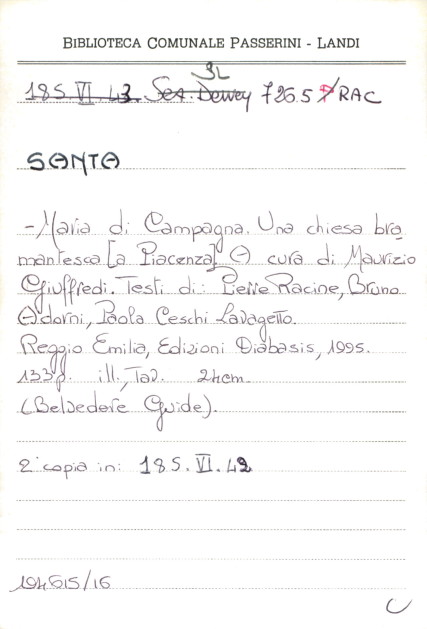 BIBLIOTECA COMUNALE PASSERINI - LANDI
SL
185 VI 43 Sez. Dewey 726.5 P RAC
SANTA
-Maria di Campagna. Una chiesa bra
mantesca [a Piacenza] A cura di Maurizio
Giuffredi. Testi di: Pierre Racine, Bruno
Adorni, Paola Ceschi Lavagetto.
Reggio Emilia, Edizioni Diabasis, 1995.
133p. ill., Tav. 24cm.
(Belvedere Guide).
2ª copia in: 185. VI. 42
194615/16